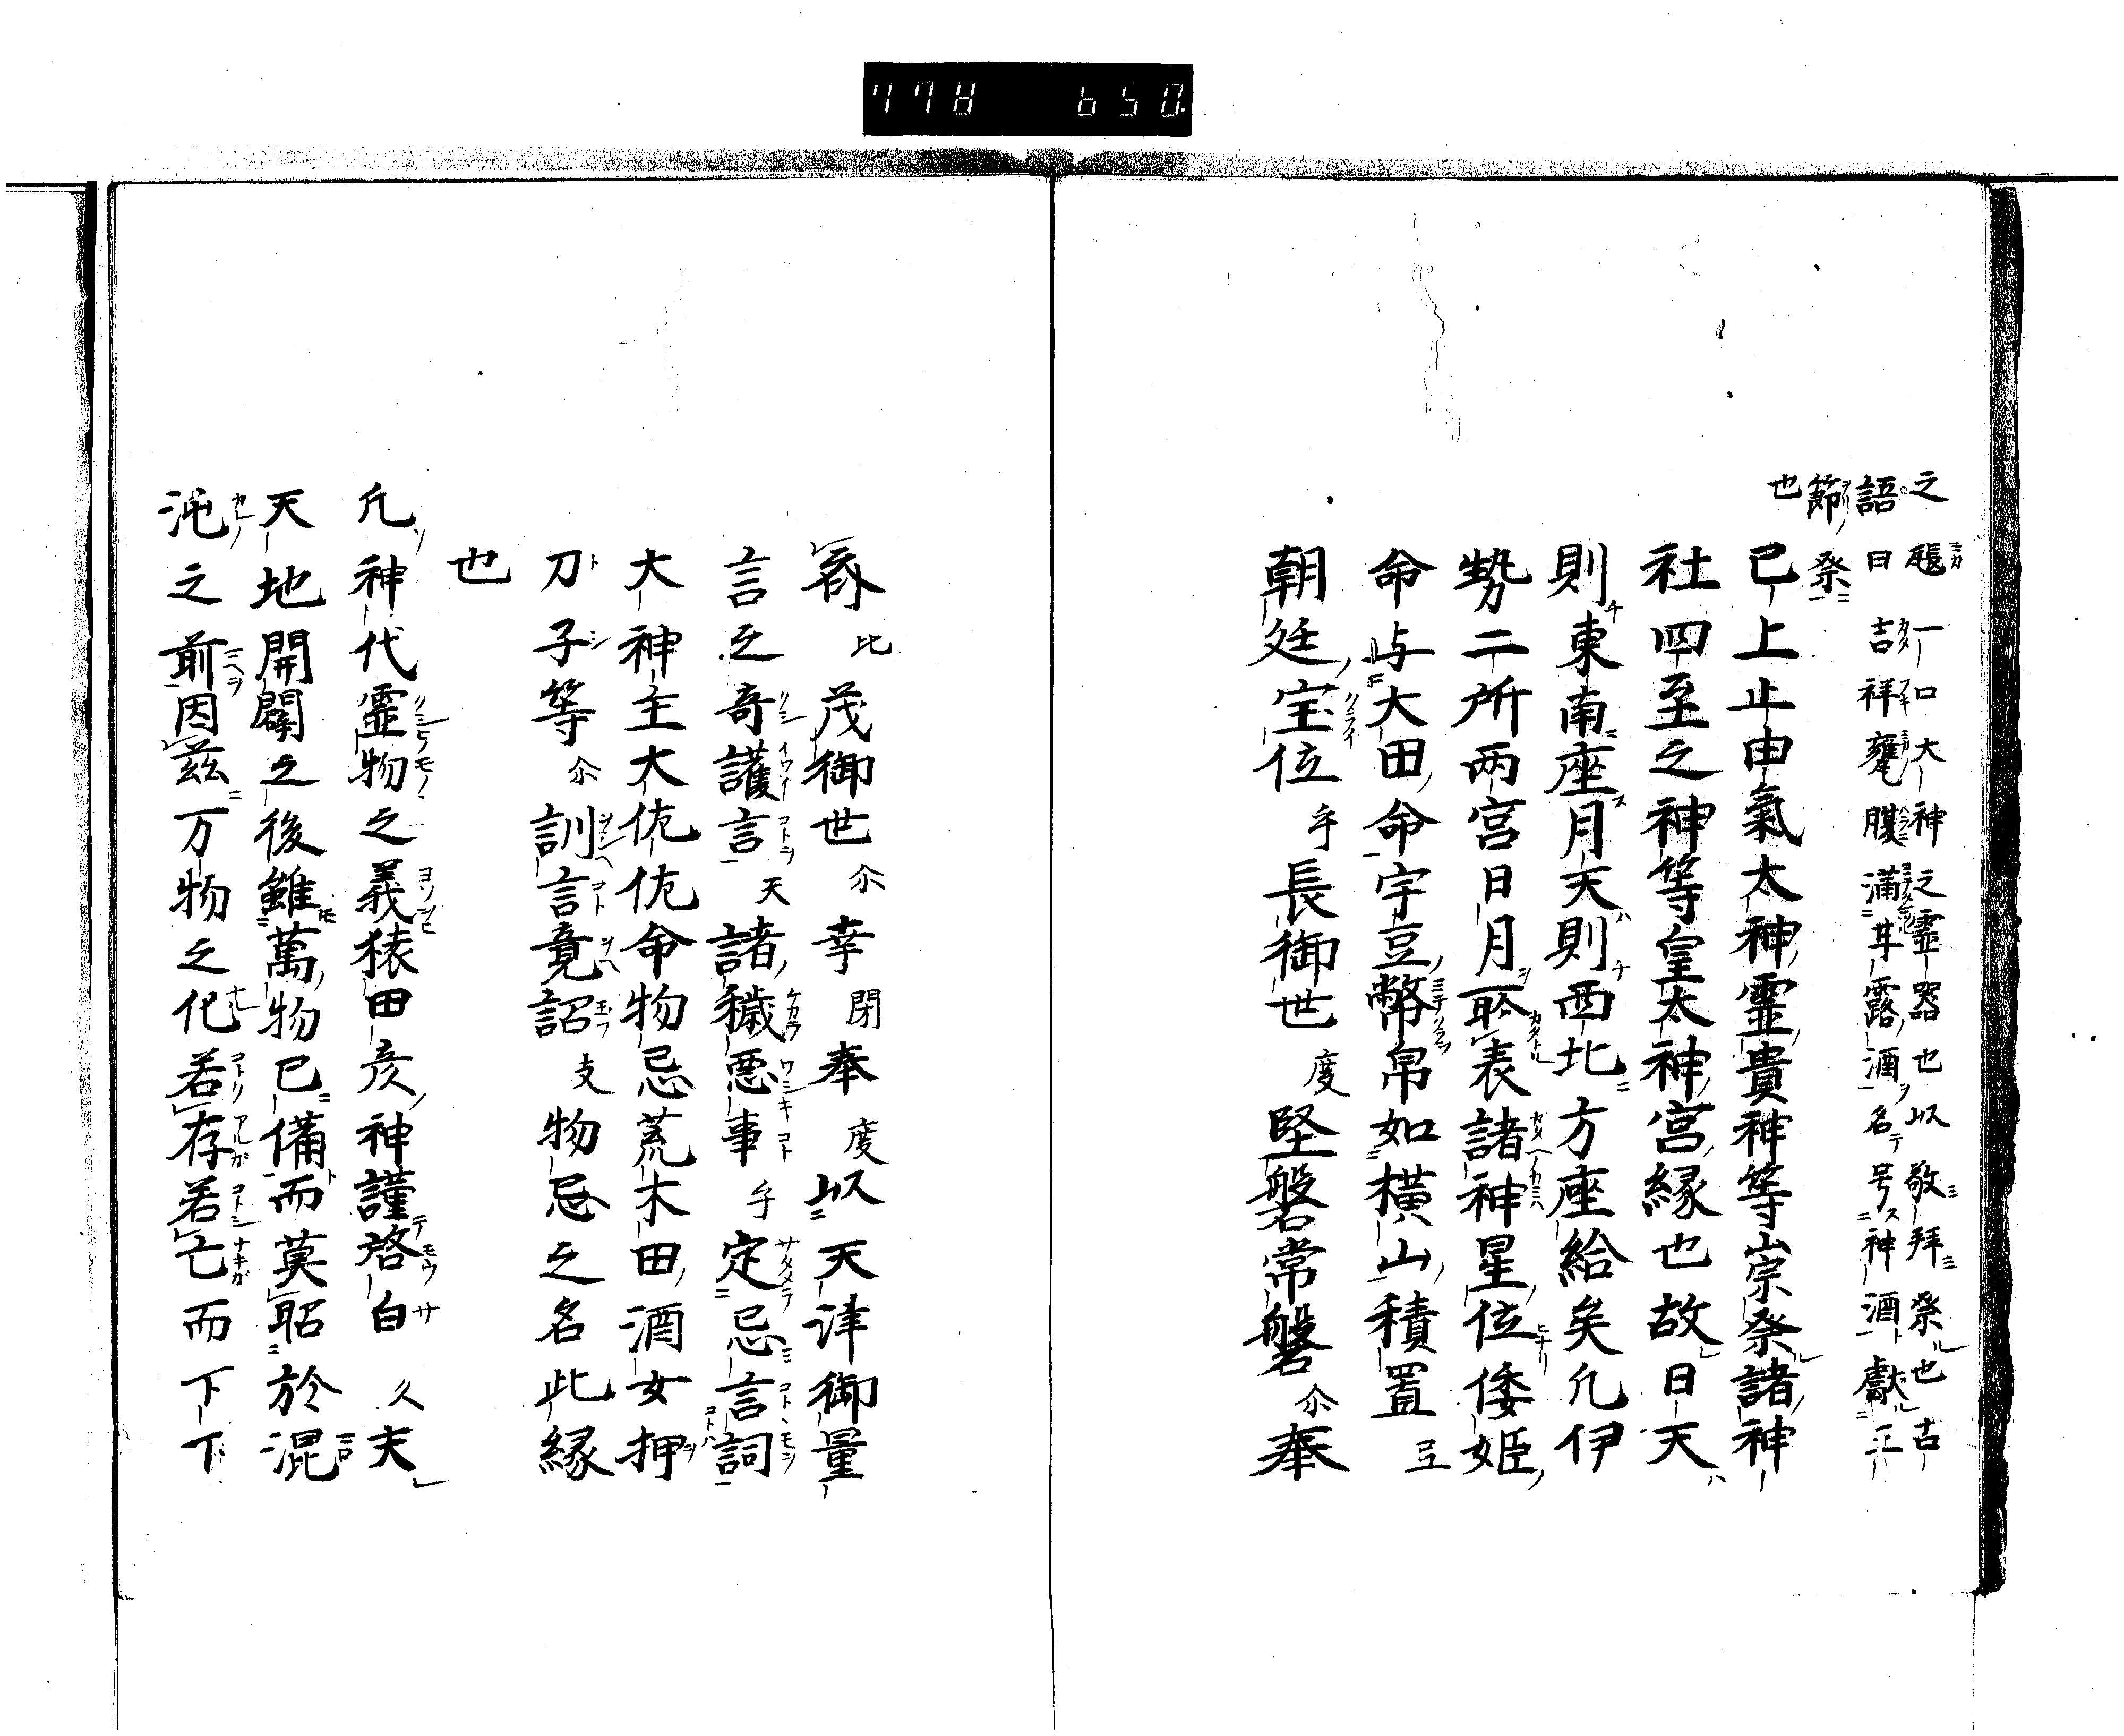 778 650
之𤭖一口大神之霊器也以敬拝祭也古
語曰吉祥甕腹満甘露酒名号神酒献
節祭
也
已上止由氣太神霊貴神等崇祭諸神
社四至之神等皇太神宮縁也故曰天
則東南座月天則西北方座給矣凢伊
勢二所両宮日月聆表諸神星位倭姫
命与大田命宇豆幣帛如横山積置弖
朝廷宝位乎長御世度堅磐常磐尒奉
比茂御世尒幸閇奉度以天津御量
言之奇護言天諸穢悪事乎定忌言詞
大神主大佐佐命物忌荒木田酒女押
刀子等尒訓言竟詔支物忌之名此縁
也
凢神代霊物之義猿田彦神謹啓白久夫
天地開闢之後雖萬物已備而莫昭於混
沌之前因茲万物之化若存若亡而下下